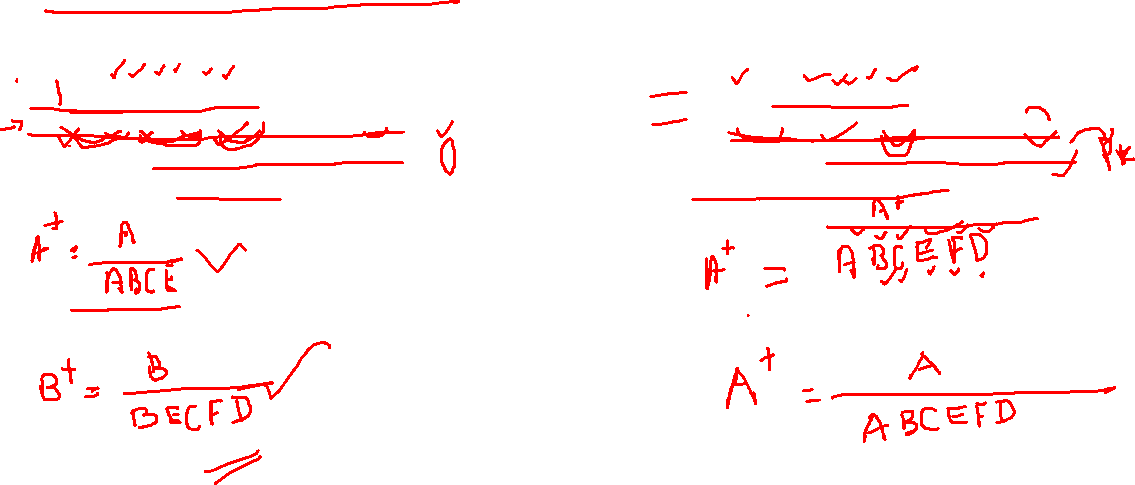 A⁺ = A
ABCE
B⁺ = B
BECFD
A⁺
A⁺ = ABCEFD
A⁺ = A
ABCEFD